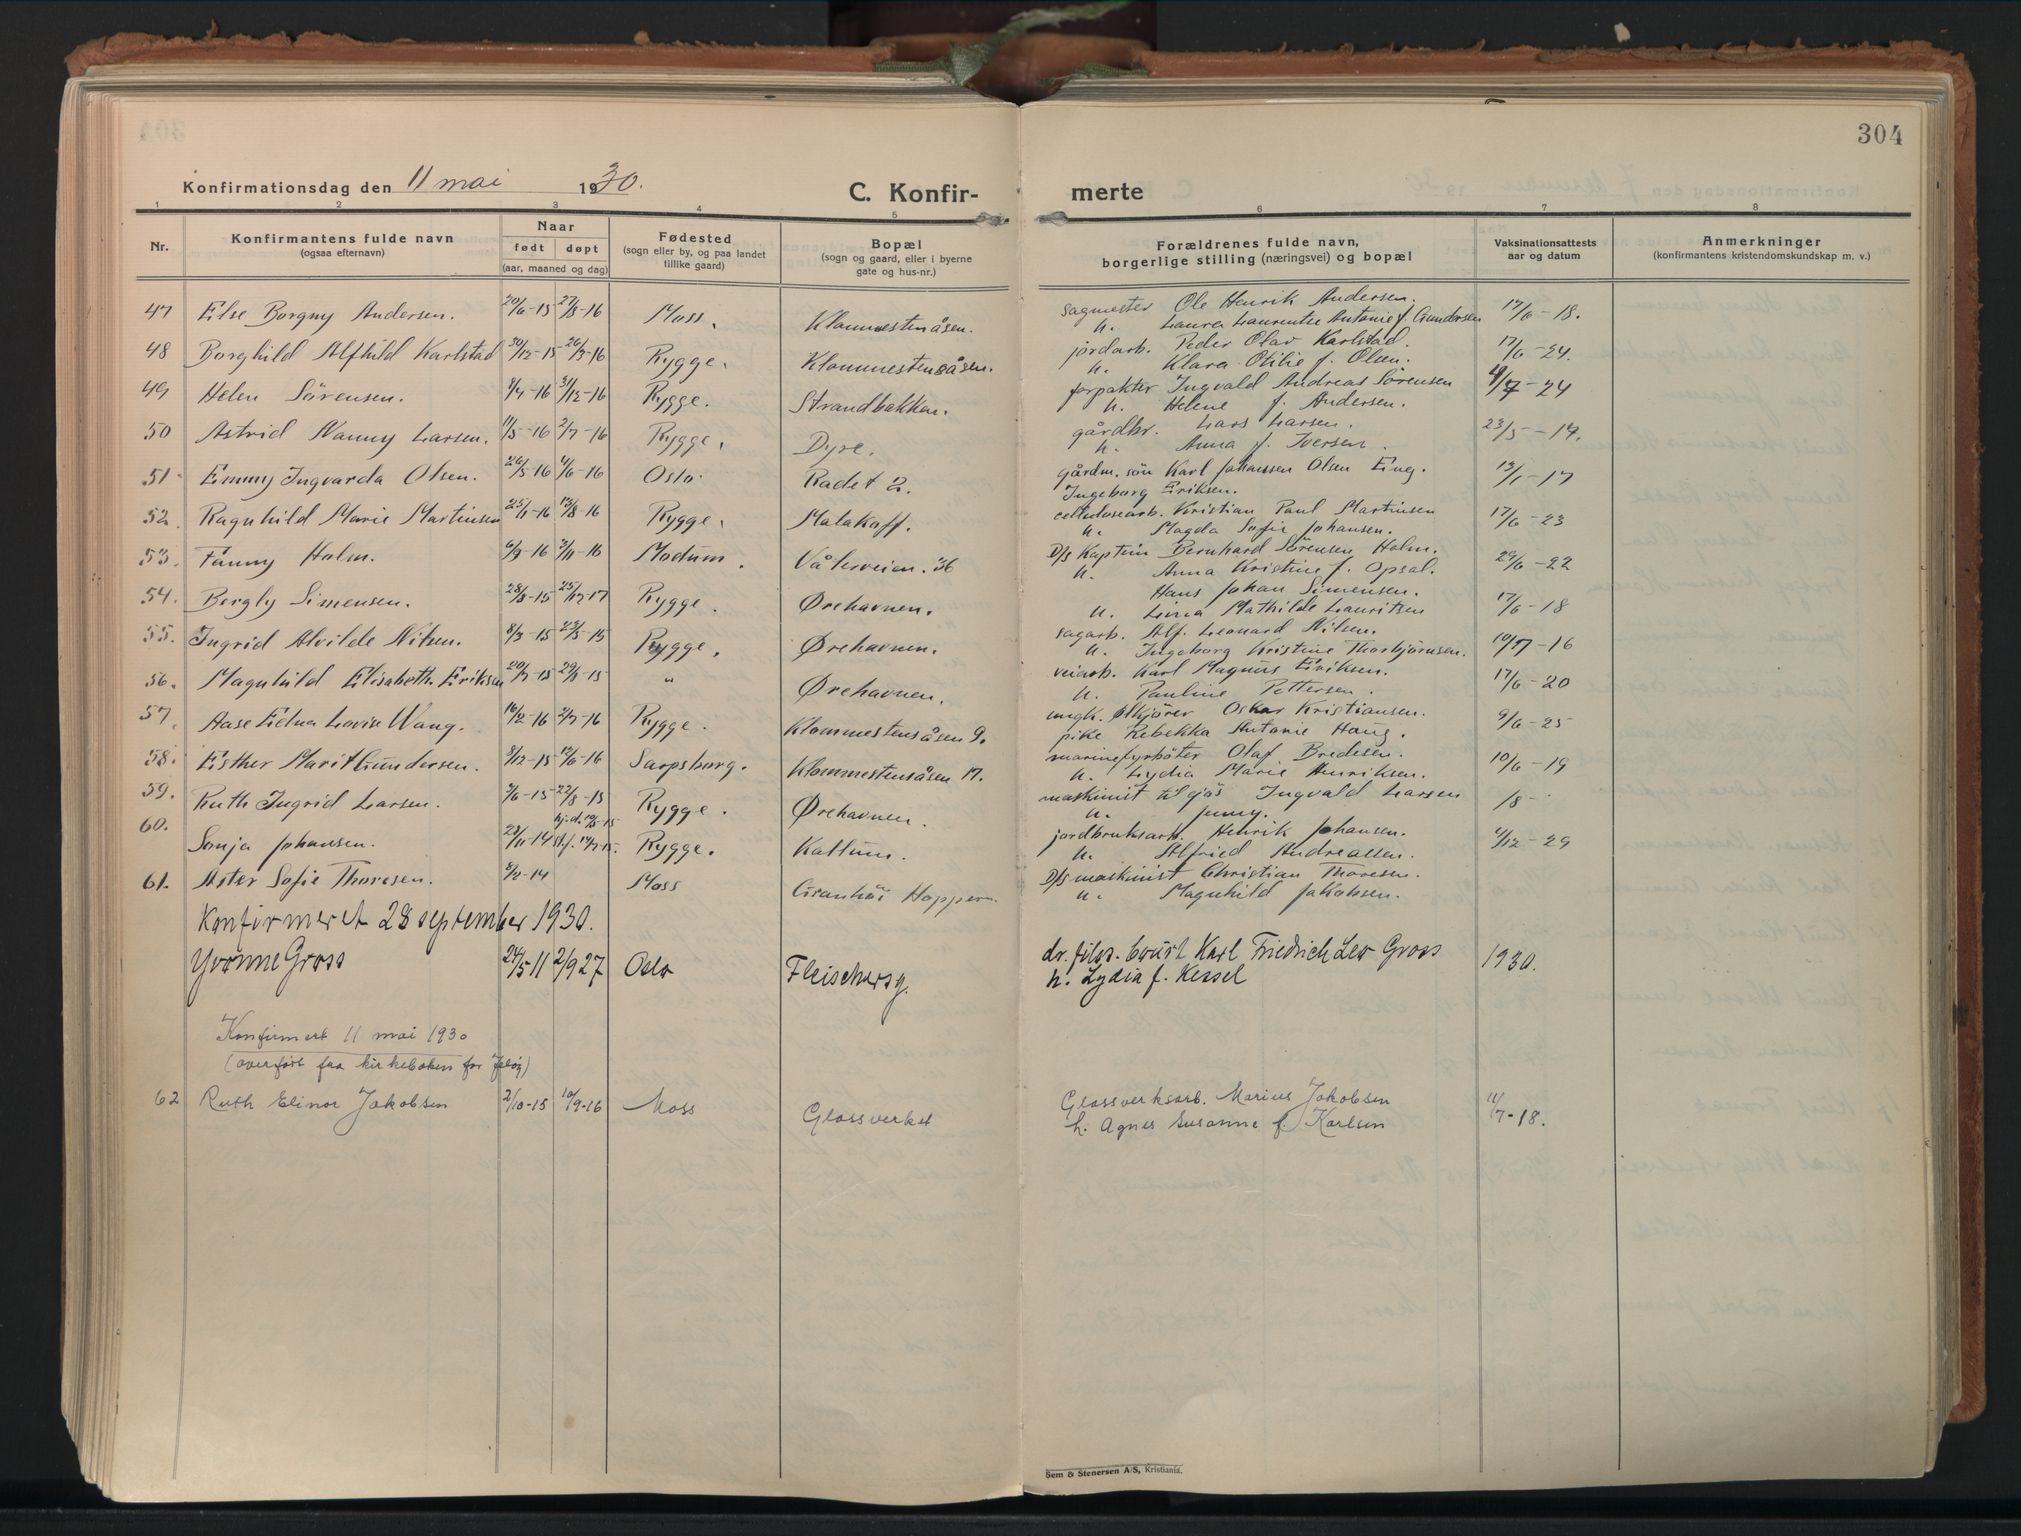 304
Konfirmationsdag den 11 mai 1930.
C. Konfirmerte
1 2 3 4 5 6 7 8
Nr.
Konfirmantens fulde navn
(ogsaa efternavn)
Naar
født døpt
(aar, maaned og dag)
Fødested
(sogn eller by, og paa landet
tillike gaard)
Bopæl
(sogn og gaard, eller i byerne
gate og hus-nr.)
Forældrenes fulde navn,
borgerlige stilling (næringsvei) og bopæl
Vaksinationsattests
aar og datum
Anmerkninger
(konfirmantens kristendomskundskap m. v.)
47 Else Borgny Andersen. 20/6-15 27/8-16 Moss. Klommestenåsen. sagmester Ole Henrik Andersen. 17/6-18.
h. Laura Laurentse Antonie f. Gundersen
48 Borghild Alfhild Karlstad 30/12-15 26/3-16 Rygge. Klommestensåsen. jordarb. Peder Olav Karlstad. 17/6-24.
h. Klara Otilie f. Olsen.
49 Helen Sörensen. 31/12-16 Rygge. Strandbakken. forpakter Ingvald Andreas Sörensen 4/7-24
h. Helene f. Andersen.
50 Astrid Nanny Larsen. 11/5-16 2/7-16 Rygge. Dyre. gårdbr. Lars Larsen. 23/5-19.
h. Anna f. Iversen.
51 Emmy Ingvarda Olsen. 26/5-16 4/6-16 Oslo. Radet 2. gårdm. sön Karl Johanssen Olsen Eng. 13/1-17
Ingeborg Eriksen.
52. Ragnhild Marie Martinsen 25/1-16 13/8-16 Rygge. Malakoff. cellulosearb. Kristian Paul Martinsen 17/6-23
h. Magda Sofie Johansen.
53. Fanny Holm. 6/9-16 3/11-16 Modum. Våterveien. 36 D/s Kaptein Bernhard Sörensen Holm. 29/6-22
h. Anna Kristine f. Opsal.
54. Bergly Simensen. 28/8-15 25/12-17 Rygge. Ørehavnen. Hans Johan Simensen. 17/6-18
h. Lina Mathilde Lauritzen
55. Ingrid Alvilde Nilsen. 8/3-15 23/5-15 Rygge. Ørehavnen. sagarb. Alf. Leonard Nilsen. 10/7-16
h. Ingeborg Kristine Thorbjörnsen.
56. Magnhild Elisabeth Eriksen 20/7-15 29/8-15 " Ørehavnen. veiarb. Karl Magnus Eriksen. 17/6-20
h. Pauline Pettersen.
57. Aase Edna Lovise Wang. 16/2-16 2/7-16 Rygge. Klommestensåsen 9. ungk. Ølkjörer Oskar Kristiansen. 9/6-25
pike Rebekka Antonie Haug.
58. Esther Marit Gundersen. 8/12-15 12/6-16 Sarpsborg. Klommestensåsen 17. marinefyrböter Olaf Bredesen. 10/6-19
h. Lydia Marie Henriksen.
59. Ruth Ingrid Larsen. 22/8-15 Rygge. Ørehavnen. maskinist til sjös Ingvald Larsen /8-
h. Jenny.
60. Sonja Johansen. 23/11-14 Rygge. Kallum. jordbruksarb. Henrik Johansen. 4/12-29
h. Alfried Andreassen.
61. Aster Sofie Thoresen. Moss D/s maskinist Christian Thoresen.
h. Magnhild Jakobsen.
Konfirmeret 28 september 1930.
Yvonne Gross 24/5 11 2/9 27 Oslo Fleischersg. dr. filos. Karl Friedrich Leo Gross 1930.
h. Lydia f. Kessel
Konfirmert 11 mai 1930
(overført fra kirkeboken for Jeløy)
62 Ruth Elinor Jakobsen 2/10-15 10/9-16 Moss Glassverket Glassverksarb. Marius Jakobsen 11/7-18.
h. Agnes Susanne f. Karlsen
Sem & Stenersen A/S, Kristiania.